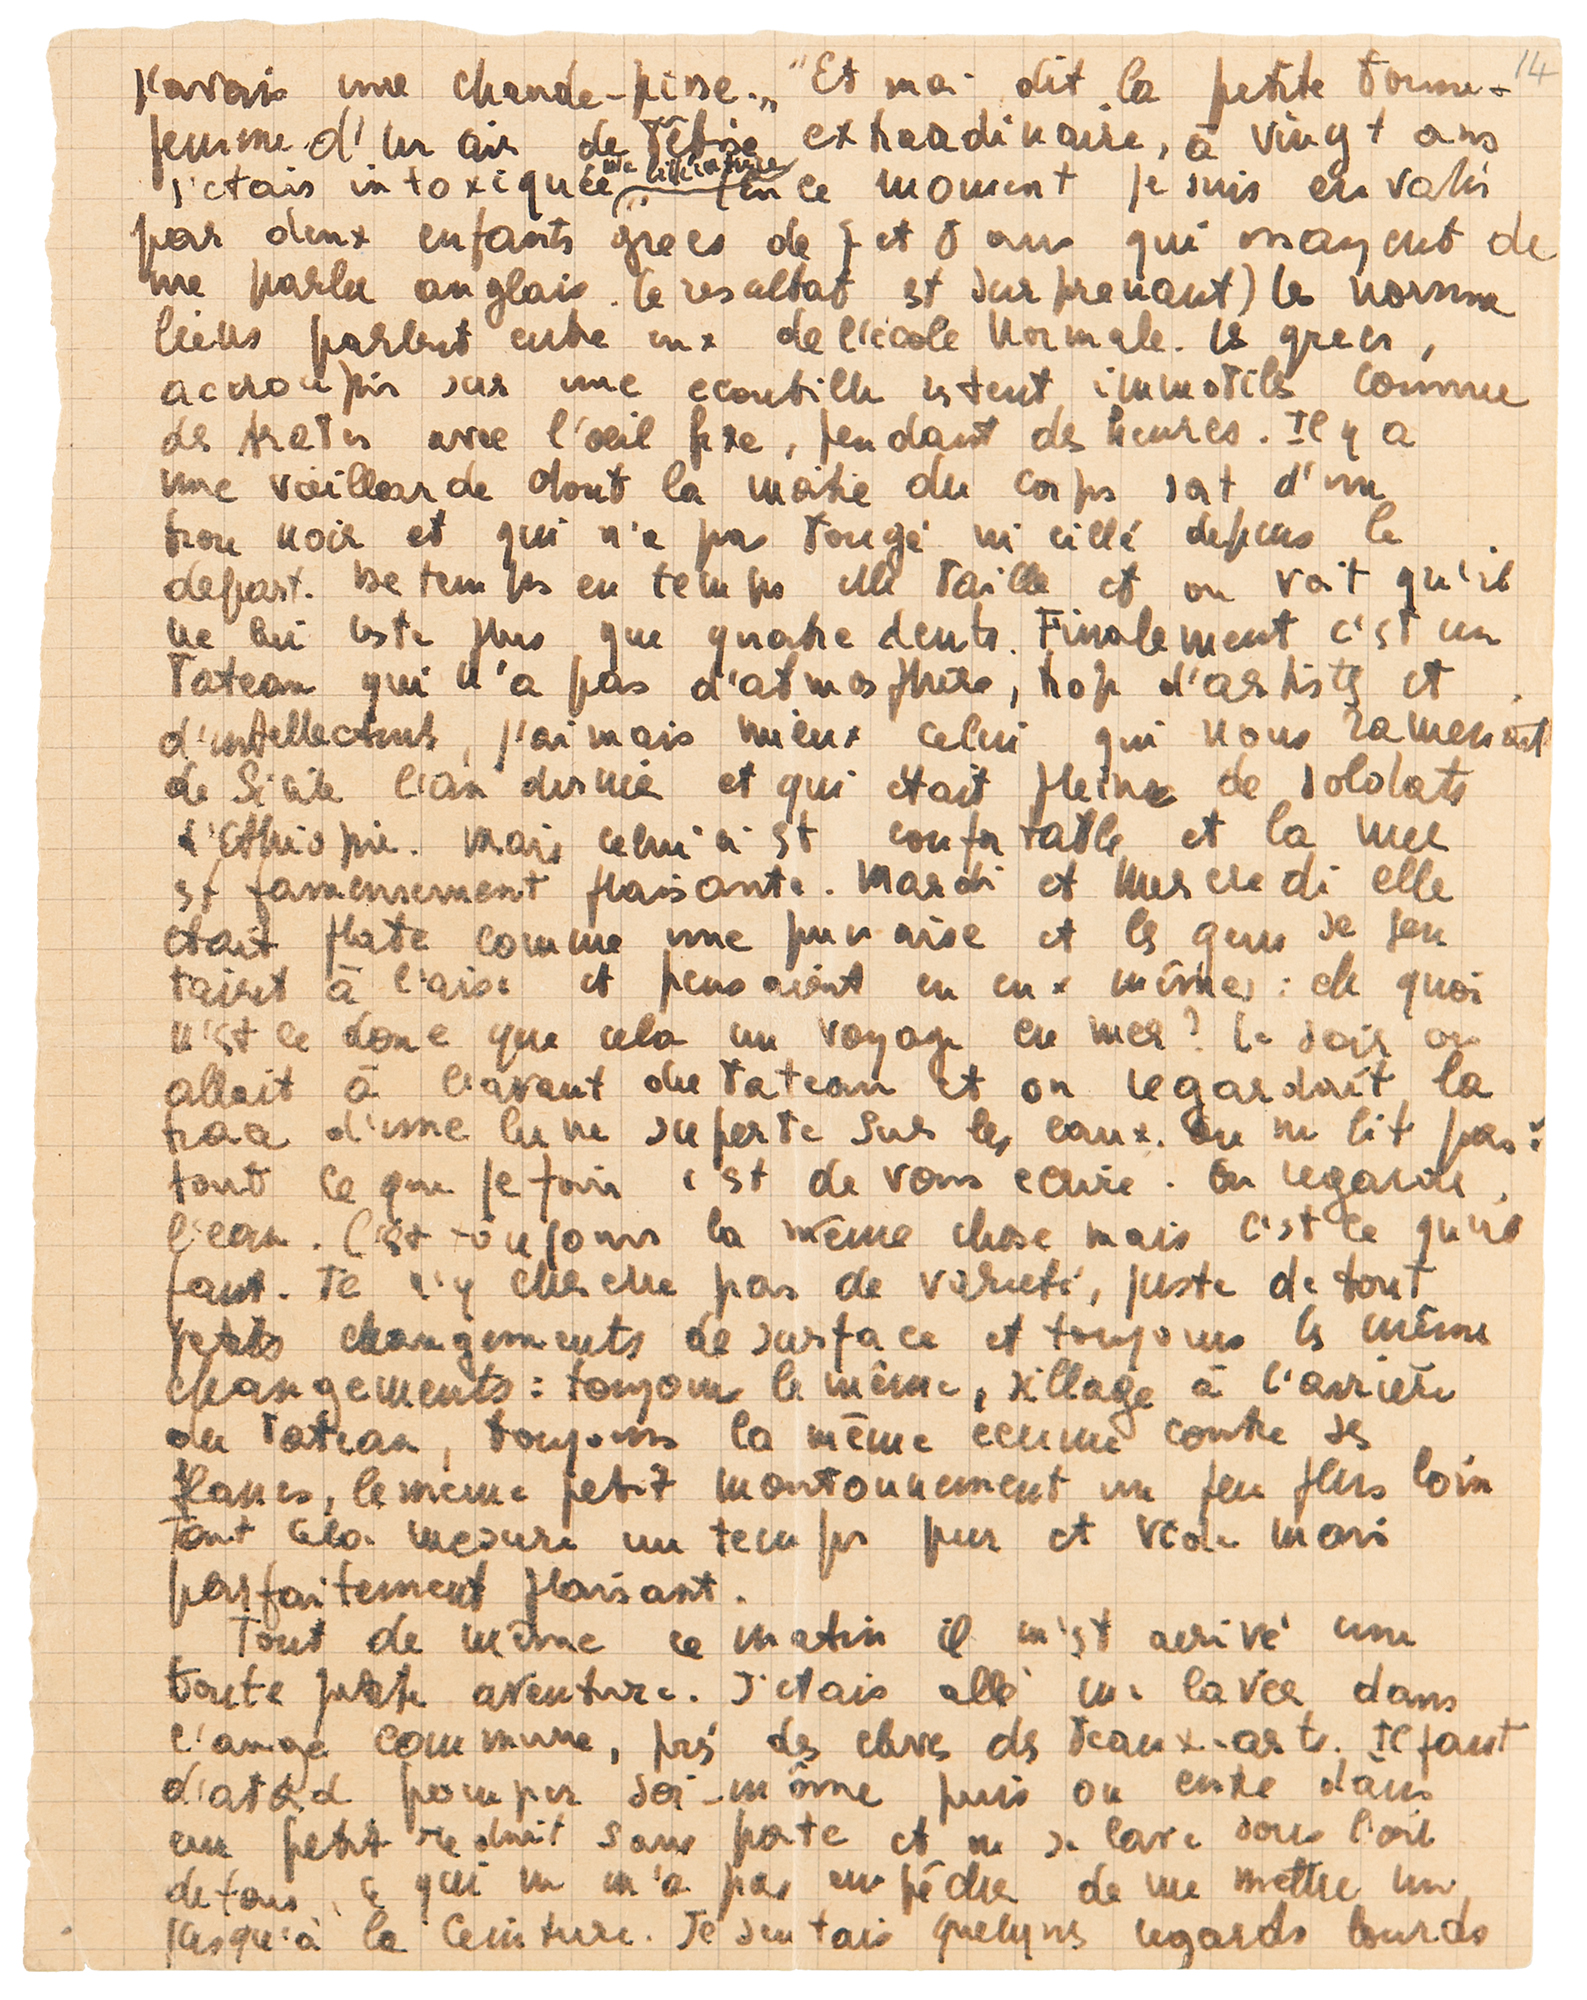 14
j'avais une chaude-pisse.„ "Et moi dit la petite bonne-
femme d'un air de bêtise extraordinaire, à vingt ans
j'étais intoxiquée de littérature" (en ce moment je suis envahi
par deux enfants grecs de 7 et 8 ans qui essayent de
me parler anglais. le resultat est surprenant) les norma
liens parlent entre eux de l'école Normale. les grecs,
accroupis sur une ecoutille restent immobiles comme
des crabes avec l'oeil fixe, pendant des heures. Il y a
une vieillarde dont la moitié du corps sort d'un
trou noir et qui n'a pas bougé ni cillé depuis le
depart. De temps en temps elle baille et on voit qu'il
ne lui reste plus que quatre dents. Finalement c'est un
bateau qui n'a pas d'atmosphère, trop d'artistes et
d'intellectuels, j'aimais mieux celui qui nous ramenait
de Sicile l'an dernier et qui était plein de soldats
d'Ethiopie. Mais celui ci est confortable et la mer
est fameusement plaisante. Mardi et Mercredi elle
était plate comme une punaise et les gens se sen
taient à l'aise et pensaient en eux mêmes : de quoi
n'est ce donc que cela un voyage en mer? Le soir on
allait à l'avant du bateau et on regardait la
trace d'une lune superbe sur les eaux. On ne lit pas :
tout ce que je fais c'est de vous ecrire. On regarde
l'eau. C'est toujours la même chose mais c'est ce qu'il
faut. Je n'y cherche pas de varieté, juste de tout
petits changements de surface et toujours les même
changements : toujours le même, sillage à l'arrière
du bateau, toujours la même écume contre ses
flancs, le même petit moutonnement un peu plus loin
tout cela mesure un temps pur et vide mais
parfaitement plaisant.
Tout de même ce matin il m'est arrivé une
toute petite aventure. J'étais allé me laver dans
l'auge commune, près des élèves des beaux-arts. Il faut
d'abord pomper soi-même puis on entre dans
un petit réduit sans porte et on se lave sous l'oeil
de tous, ce qui ne m'a pas empêché de me mettre nu
jusqu'à la ceinture. Je sentais quelques regards lourds